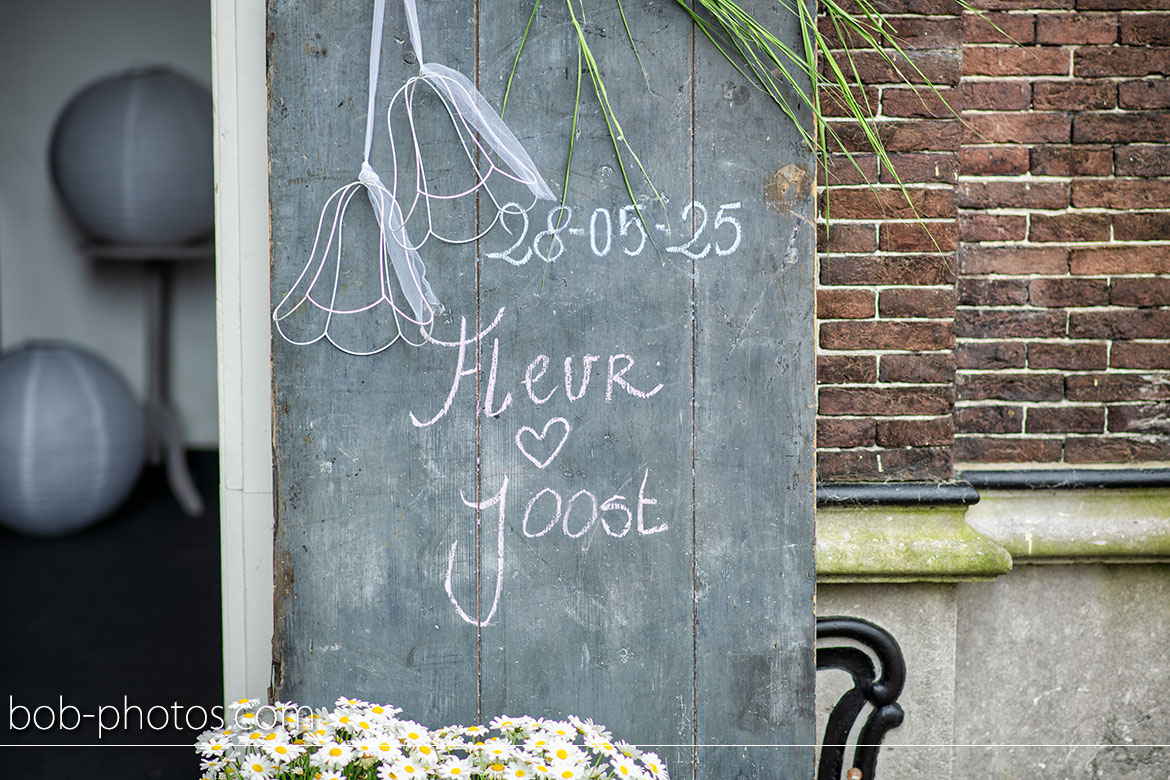 28-05-25
Fleur
♡
Joost
bob-photos.com